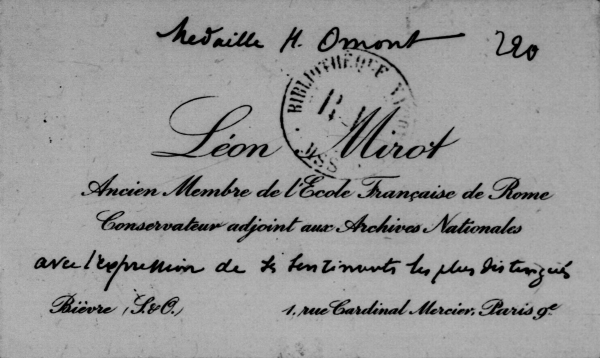 Medaille H. Omont 220
BIBLIOTHÈQUE
R.F.
MSS
Léon Mirot
Ancien Membre de l'École Française de Rome
Conservateur adjoint aux Archives Nationales
avec l'expression de ses sentiments les plus distingués
Bièvre (S.&O.) 1, rue Cardinal Mercier, Paris 9e